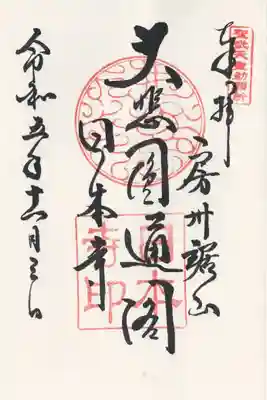 聖武天皇勅願所
奉拝
房州鋸山
大悲圓通閣
日本寺
日本寺印
令和五年十一月三日